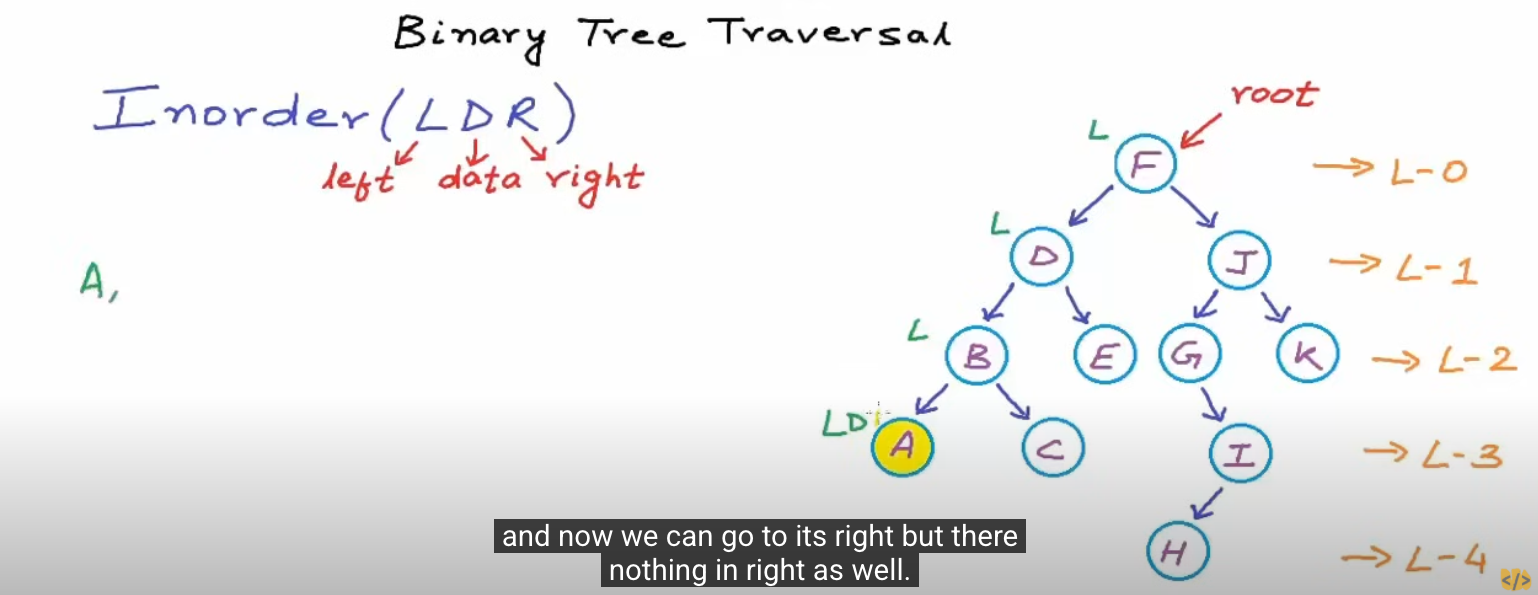 Binary Tree Traversal
Inorder (L D R)
left data right
root
L
F
→ L-0
L
D
J
→ L-1
A,
L
B
E
G
K
→ L-2
LD
A
C
I
→ L-3
H
→ L-4
and now we can go to its right but there
nothing in right as well.
</>